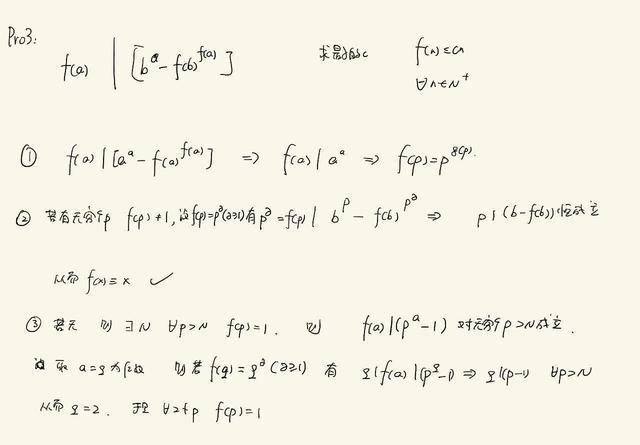 Pro3:
f(a) | [b^a - f(b)^{f(a)}] 求最小的c f(n)≤cn
∀n∈N^+
① f(a) | [a^a - f(a)^{f(a)}] ⇒ f(a) | a^a ⇒ f(p)=p^{g(p)}.
② 若有无穷个p f(p)≠1, 设f(p)=p^a(a≥1)有p^a=f(p) | b^p - f(b)^{p^a} ⇒ p | (b-f(b))恒成立
从而 f(x)≡x ✓
③ 若无 则 ∃N ∀p>N f(p)=1. 则 f(a)|(p^a-1) 对无穷个p>N成立.
取 a=q为 则若 f(q)=q^a(a≥1) 有 q|f(a)|(p^q-1) ⇒ q|(p-1) ∀p>N
从而 q=2. 于是 ∀2∤p f(p)=1